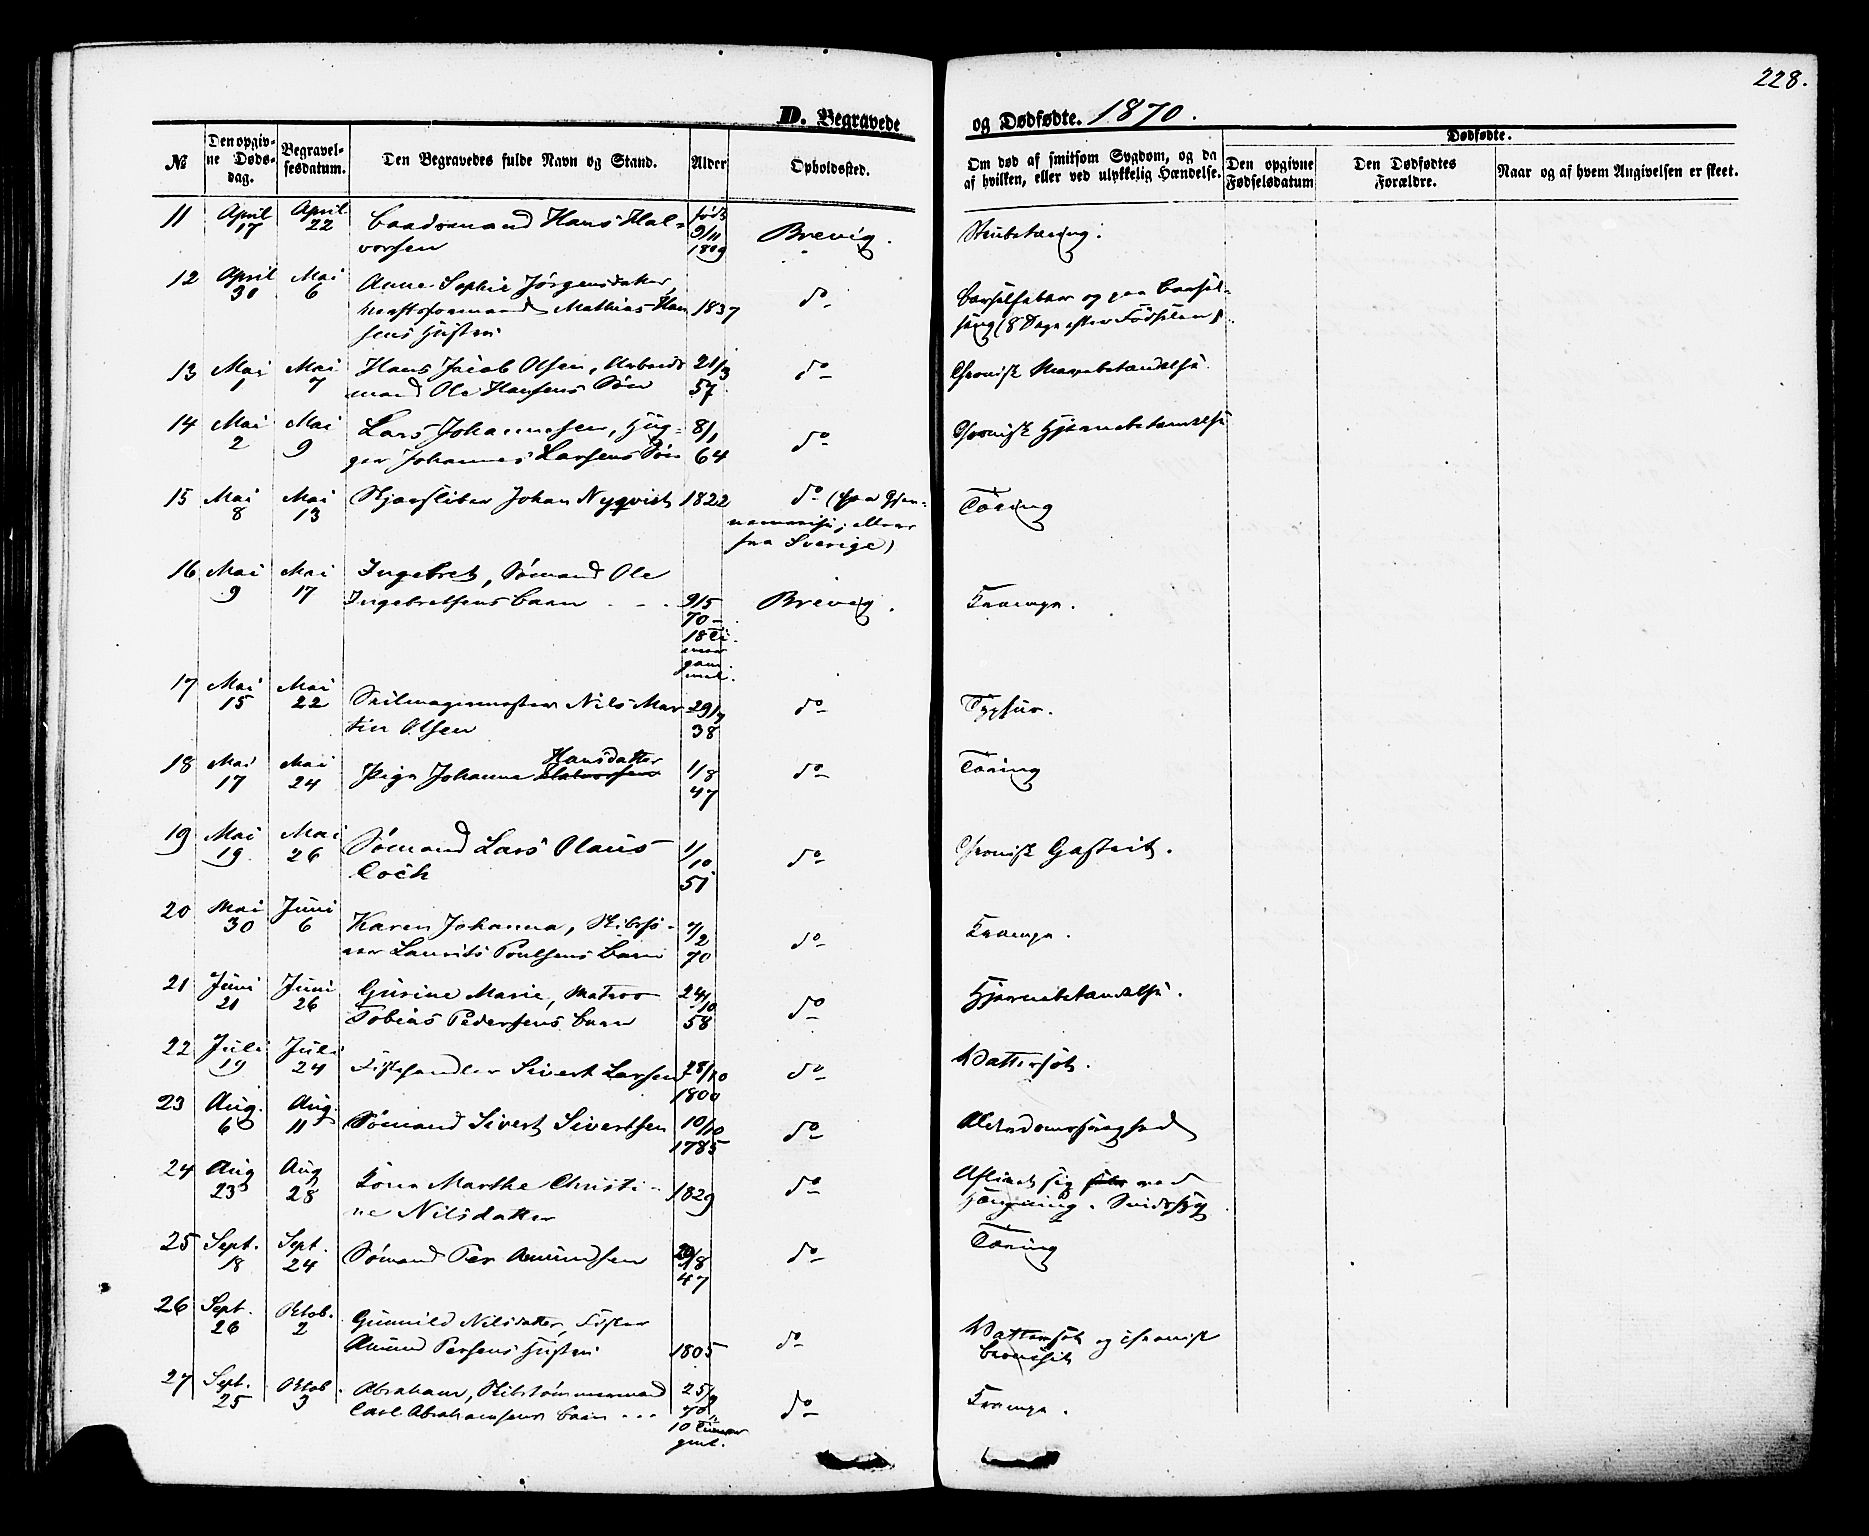 228.
D. Begravede og Dødfødte. 1870.
№
Den opgivne Dødsdag.
Begravelsesdatum.
Den Begravedes fulde Navn og Stand.
Alder
Opholdssted.
Om død af smitsom Sygdom, og da af hvilken, eller ved ulykkelig Hændelse.
Dødfødte.
Den opgivne Fødselsdatum
Den Dødfødtes Forældre.
Naar og af hvem Angivelsen er skeet.
11 April 17 April 22 Baadsmand Hans Hal-
vorsen 9/11 1809 Brevig. Strubetæring.
12 April 30 Mai 6 Anne Sophie Jørgensdatter,
Mathias Han-
sens Hustru 1837 do Barselfeber og paa Barsel-
seng (8 Dage efter Fødselen).
13 Mai 1 Mai 7 Hans Jacob Olsen, Arbeids-
mand Ole Hansens Søn 21/3 57 do Chronisk Marvbetændelse.
14 Mai 2 Mai 9 Lars Johannesen,
Johannes Larsens Søn 8/1 64 do Chronisk Hjernebetændelse
15 Mai 8 Mai 13 Skjærsliber Johan Nyqvist 1822 do (fra
ellers
fra Sverige) Tæring
16 Mai 9 Mai 17 Ingebret, Sømand Ole
Ingebretsens Barn 9/5 70 - 18 Timer gammel. Brevig. Krampe.
17 Mai 15 Mai 22 Seilmagermester Nils Mar-
tin Olsen 29/7 38 do Typhus.
18 Mai 17 Mai 24 Pige Johanne Halvorsen Hansdatter 1/8 47 do Tæring
19 Mai 19 Mai 26 Sømand Lars Olaus
Coch 1/10 51 do Chronisk Gastrit.
20 Mai 30 Juni 6 Karen Johanna, Skibsfø-
rer Laurits Poulsens Barn 70 do Krampe.
21 Juni 21 Juni 26 Gusine Marie, Matros
Tobias Pedersens Barn 24/10 58 do Hjernebetændelse.
22 Juli 19 Juli 24 Fiskehandler Sivert Larsen 28/10 1800 do Vattersot.
23 Aug. 6 Aug. 11 Sømand Sivert Sivertsen 10/10 1785 do Alderdomssvaghed
24 Aug 23 Aug 28 Kone Marthe Christi-
ne Nilsdatter 1829 do Aflivet sig ved
Hængning. Sindssyg
25 Sept. 18 Sept. 24 Sømand Per Amundsen 20/8 47 do Tæring
26 Sept. 26 Oktob. 2 Gunnild Nilsdatter, Fisker
Amund Persens Hustru 1805 do Vattersot og chronisk
Bronchit
27 Sept. 25 Oktob. 3 Abraham, Skibstømmermand
Carl Abrahamsens Barn 25/9 70, 10 Timer gml. do Krampe.